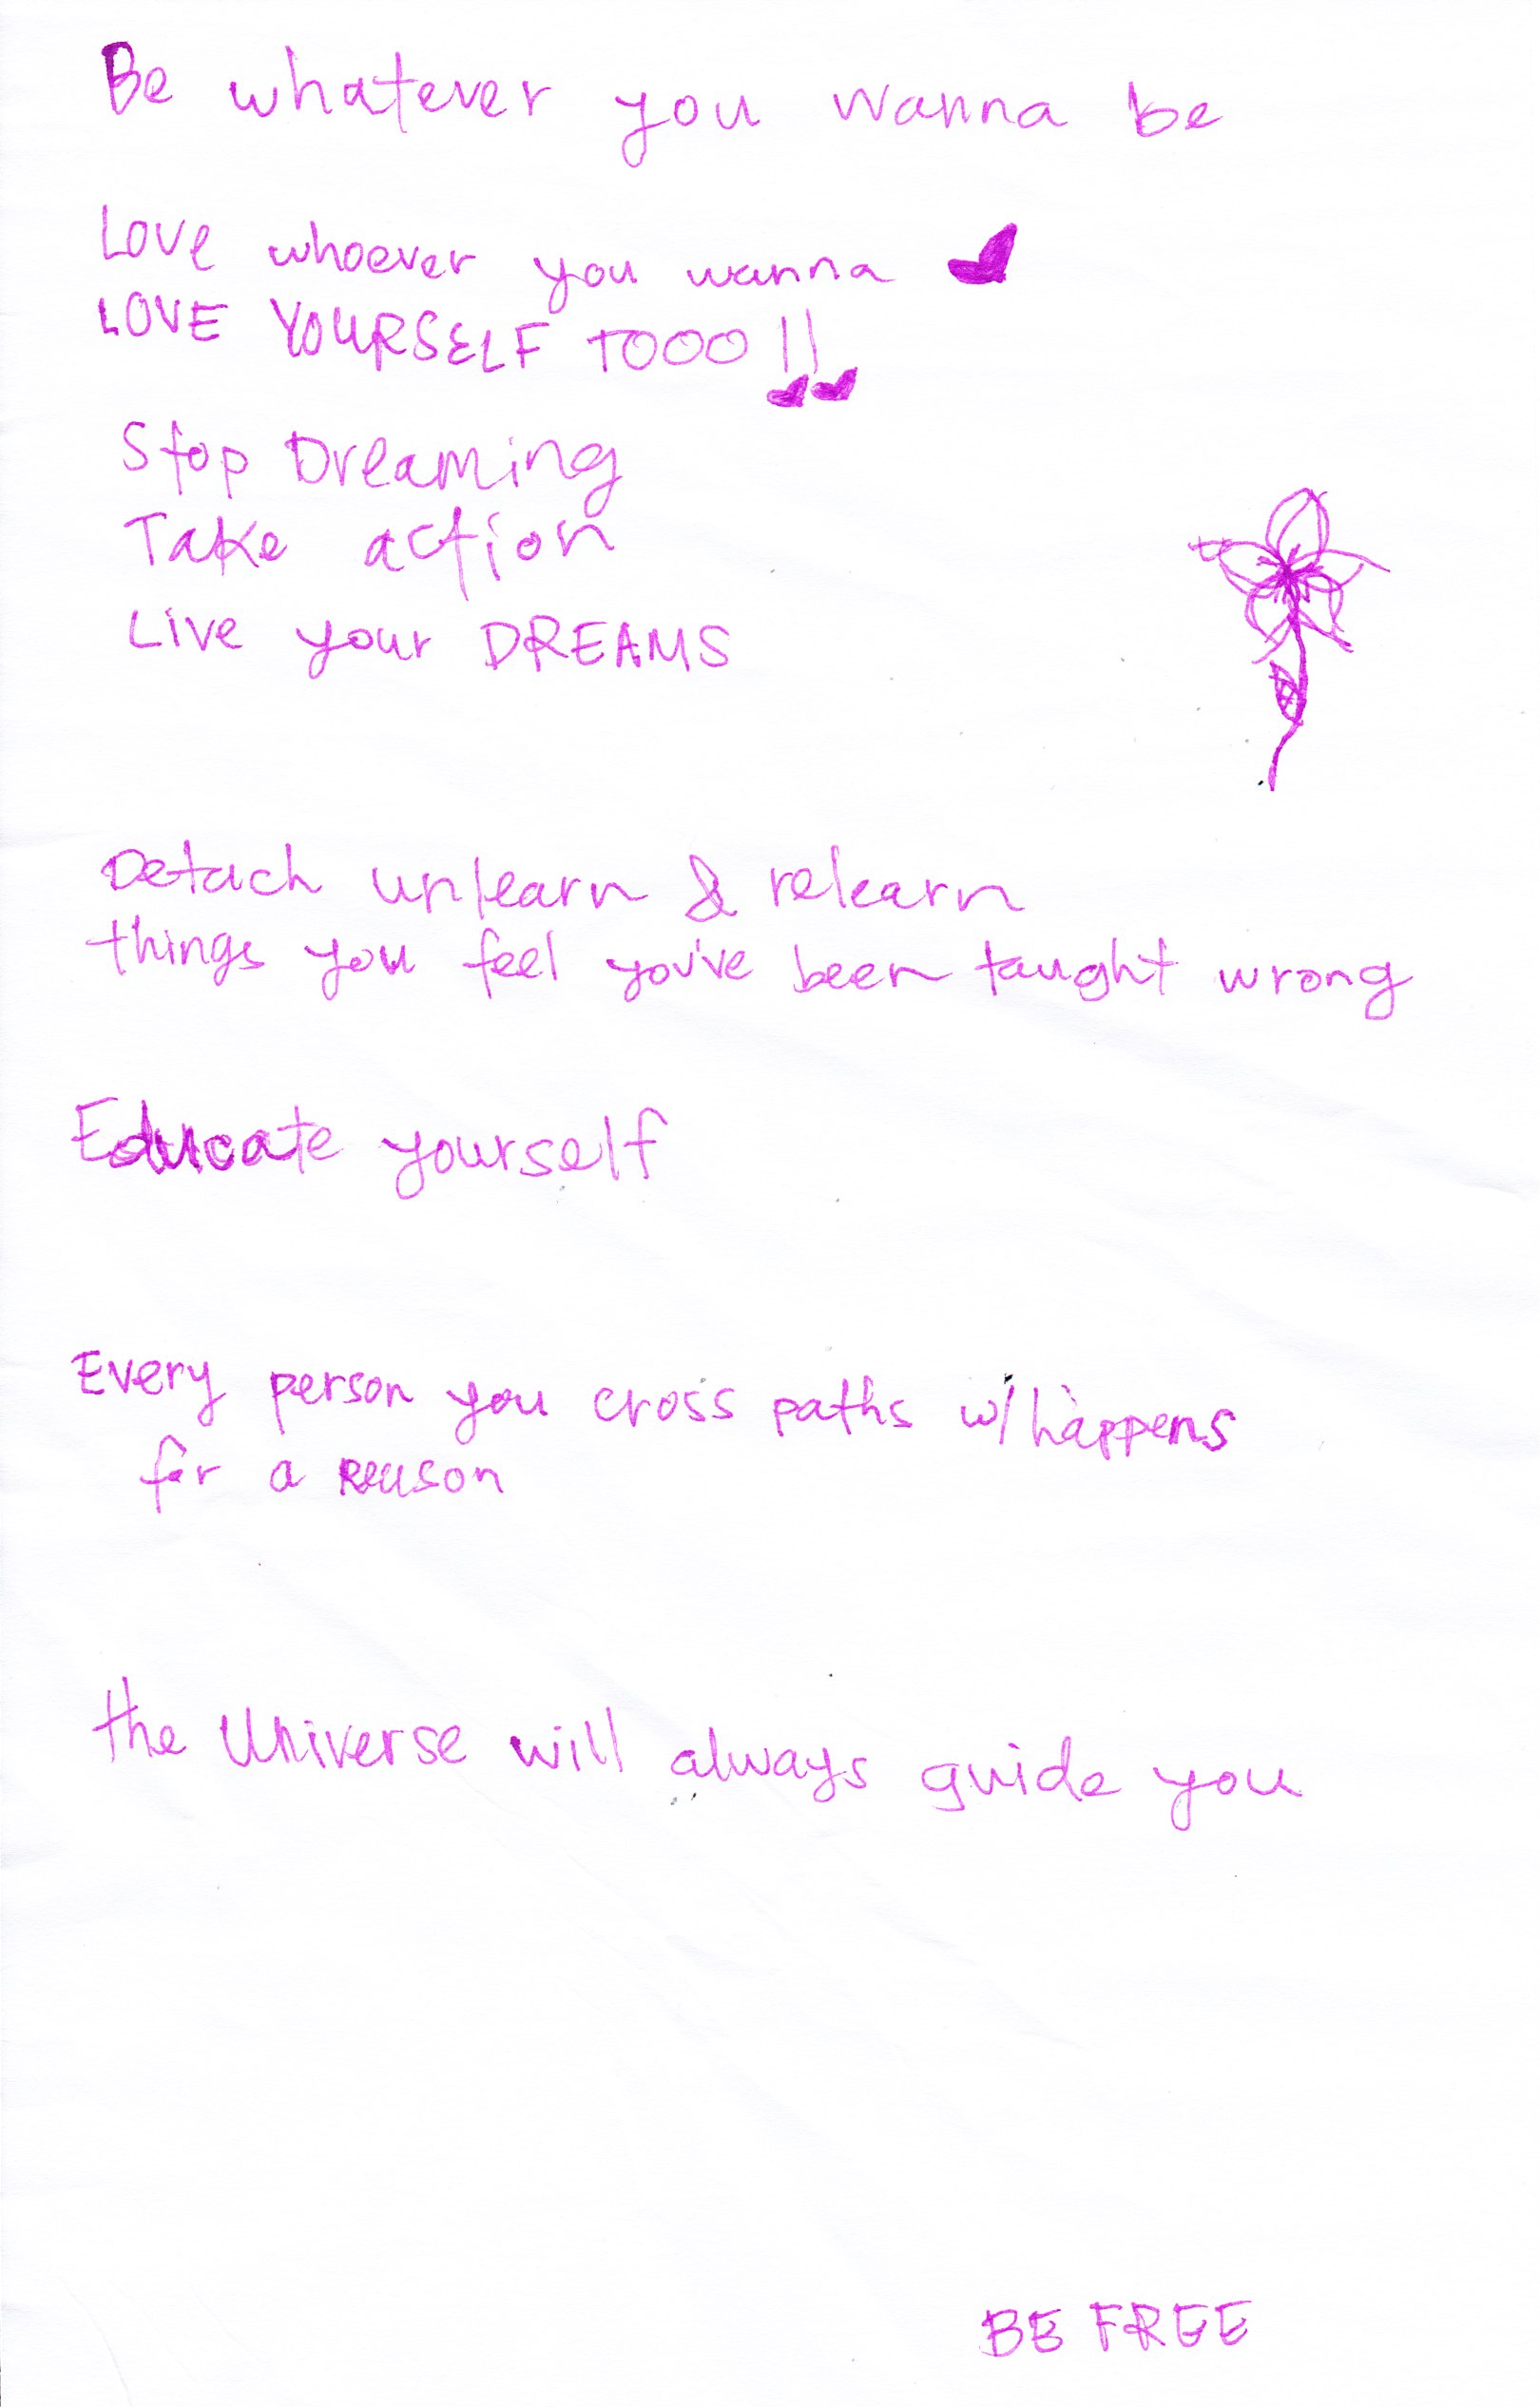 Be whatever you wanna be
Love whoever you wanna
LOVE YOURSELF TOOO !!
Stop Dreaming
Take action
Live your DREAMS
Detach unlearn & relearn
things you feel you've been taught wrong
Educate yourself
Every person you cross paths w/ happens
for a reason
the Universe will always guide you
BE FREE